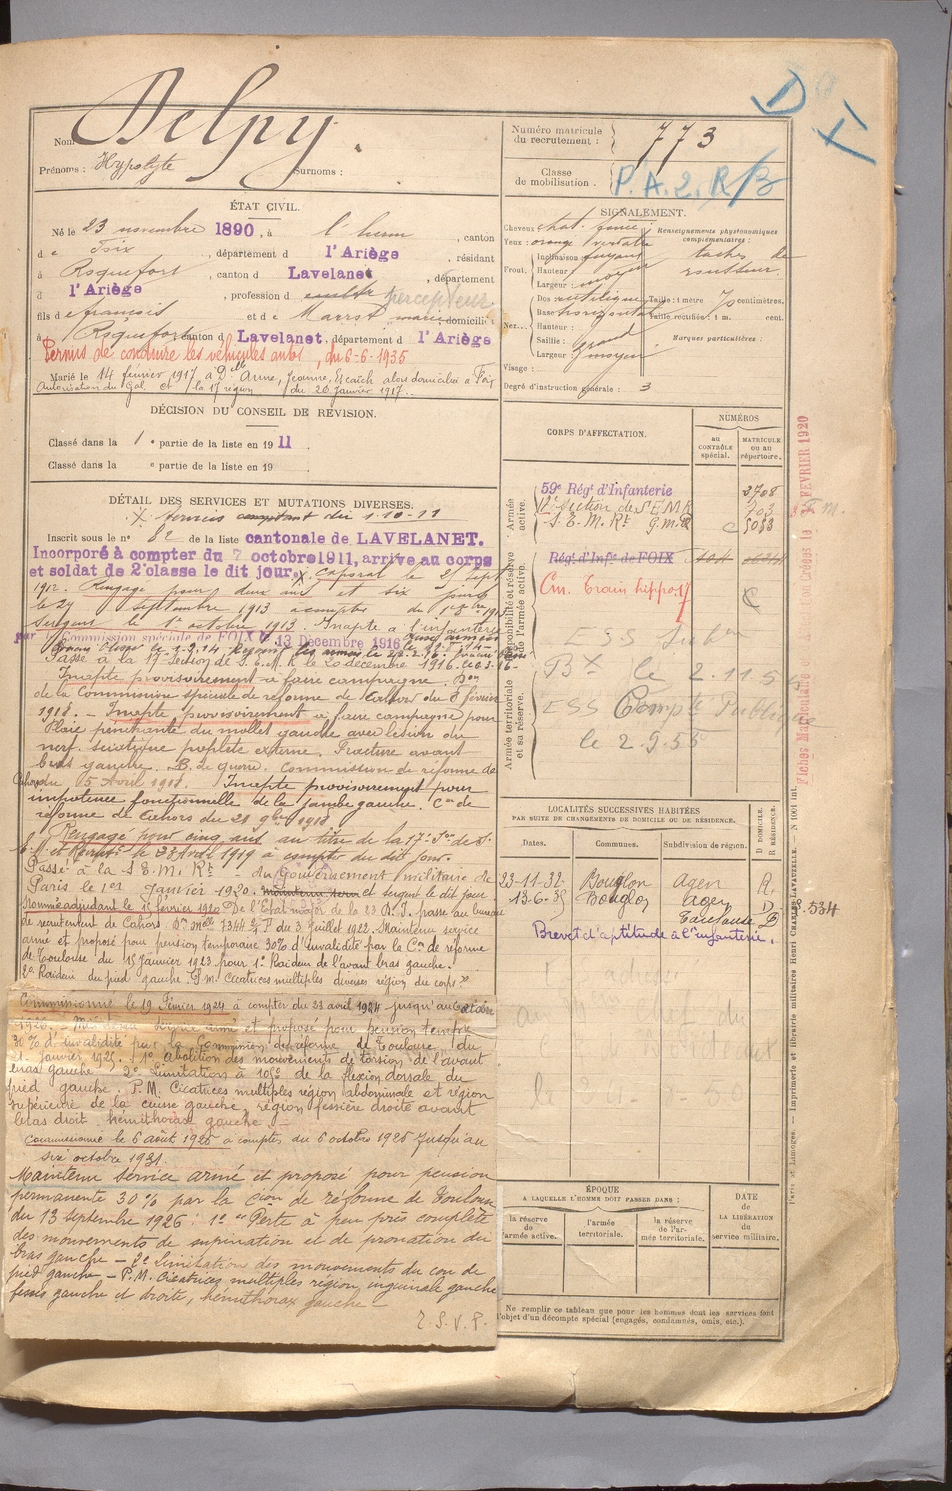 Nom Delpy.
Prénoms : Hypolyte Surnoms :
Numéro matricule du recrutement : 773
Classe de mobilisation . P. A. 2. R/B
D
ÉTAT CIVIL.
Né le 23 novembre 1890, à l'herm , canton
d e Foix , département d l'Ariège , résidant
à Roquefort , canton d Lavelanet , département
d l'Ariège , profession d percepteur
fils de françois et de marie domicilié
à Roquefort canton d Lavelanet, département d l'Ariège
Permis de conduire les véhicules autos , du 6-6-1935
Marié le 14 février 1917 à Dlle Anne, Jeanne, Escaich alors domiciliée à Foix
Autorisation du Gal. Ct la 17 région du 20 Janvier 1917.
SIGNALEMENT.
Cheveux chat. foncé
Yeux : orange verdâtre
Front. Inclinaison fuyant
Hauteur :
Largeur : moyen
Nez... Dos rectiligne
Base horizontale
Hauteur :
Saillie : Grand
Largeur : moyen
Visage :
Renseignements physionomiques complémentaires :
taches de rousseur
Taille : 1 mètre 70 centimètres.
Taille rectifiée : 1 m. cent.
Marques particulières :
Degré d'instruction générale : 3
DÉCISION DU CONSEIL DE REVISION.
Classé dans la 1 e partie de la liste en 1911
Classé dans la e partie de la liste en 19
DÉTAIL DES SERVICES ET MUTATIONS DIVERSES.
X Services comptant du 1-10-11
Inscrit sous le n° 82 de la liste cantonale de LAVELANET.
Incorporé à compter du 7 octobre 1911, arrivé au corps
et soldat de 2e classe le dit jour. X Caporal le 25 sept
1912. Rengagé pour deux ans et six jours
le 24 septembre 1913 à compter du 1er 8bre 1913
Sergent le 1er octobre 1913. Inapte à l'infanterie
par Commission spéciale de FOIX le 13 Décembre 1916
Passé à la 17e Section de S. E. M. R le 20 décembre 1916.
Inapte provisoirement à faire campagne. Don
de la Commission spéciale de réforme de Cahors du 8 février
1918. – Inapte provisoirement à faire campagne pour
Plaie pénétrante du mollet gauche avec lésion du
nerf sciatique poplité externe. Fracture avant
bras gauche. B. de guerre. Commission de réforme de
Cahors du 15 Avril 1918. Inapte provisoirement pour
impotence fonctionnelle de la jambe gauche. Con de
réforme de Cahors du 21 9bre 1918
Rengagé pour cinq ans au titre de la 17e Son de S.
E. M. et Rectt le 23 Avril 1919 à compter du dit jour.
Passé à la S. E. M. Rt du Gouvernement militaire de
Paris le 1er Janvier 1920. et sergent le dit jour
Nommé adjudant le 1er février 1920 De l'Etat major de la 23 D. I. passe au bureau
de recrutement de Cahors. Don Mlle 7344 3/7 P du 3 Juillet 1922. Maintenu service
armé et proposé pour pension temporaire 30% d'invalidité par la Con de réforme
de Toulouse du 15 Janvier 1923 pour 1° Raideur de l'avant bras gauche.
2° Raideur du pied gauche P.M. Cicatrices multiples diverses région du corps
Commissionné le 19 Février 1924 à compter du 23 avril 1924 jusqu'au octobre
1925. – Maintenu service armé et proposé pour pension tempre
30% d'invalidité par la Commission de réforme de Toulouse du
21 Janvier 1925. 1° abolition des mouvements de torsion de l'avant
bras gauche 2° Limitation à 105° de la flexion dorsale du
pied gauche. P. M. Cicatrices multiples région abdominale et région
supérieure de la cuisse gauche, région fessière droite avant
bras droit, hémithorax gauche –
Commissionné le 6 août 1925 à compter du 6 octobre 1925 jusqu'au
six octobre 1931.
Maintenu service armé et proposé pour pension
permanente 30 % par la Cion de réforme de Toulouse
du 13 septembre 1926 : 1° Perte à peu près complète
des mouvements de supination et de pronation du
bras gauche – 2° Limitation des mouvements du cou de
pied gauche – P.M. Cicatrices multiples région inguinale gauche
fesses gauche et droite, hémithorax gauche –
T. S. V. P.
CORPS D'AFFECTATION.
NUMÉROS
AU CONTRÔLE spécial.
MATRICULE ou au répertoire.
Armée active.
59e Régt d'Infanterie 3708
17e Section de S E M R 703
S. E. M. Rt G.M.P. C 5083
Disponibilité et réserve de l'armée active.
Régt d'Infie de FOIX
Cm. Train hippo.17 C
Armée territoriale et sa réserve.
ESS Subon
Bx le 2.11.51
ESS Compté Publique
le 2.9.55
Fiches Matriculaires FÉVRIER 1920
LOCALITÉS SUCCESSIVES HABITÉES
PAR SUITE DE CHANGEMENTS DE DOMICILE OU DE RÉSIDENCE.
Dates. Communes. Subdivision de région. D DOMICILE. R RÉSIDENCE.
23-11-32 Bouglon Agen R.
13.6.35 Bouglon Agen D
Toulouse D
Brevet d'aptitude à l'infanterie.
ÉPOQUE
A LAQUELLE L'HOMME DOIT PASSER DANS :
la réserve de l'armée active.
l'armée territoriale.
la réserve de l'armée territoriale.
DATE DE LA LIBÉRATION du service militaire.
Ne remplir ce tableau que pour les hommes dont les services font
l'objet d'un décompte spécial (engagés, condamnés, omis, etc.).
Paris et Limoges. — Imprimerie et librairie militaires Henri CHARLES-LAVAUZELLE. — N 1061 int.